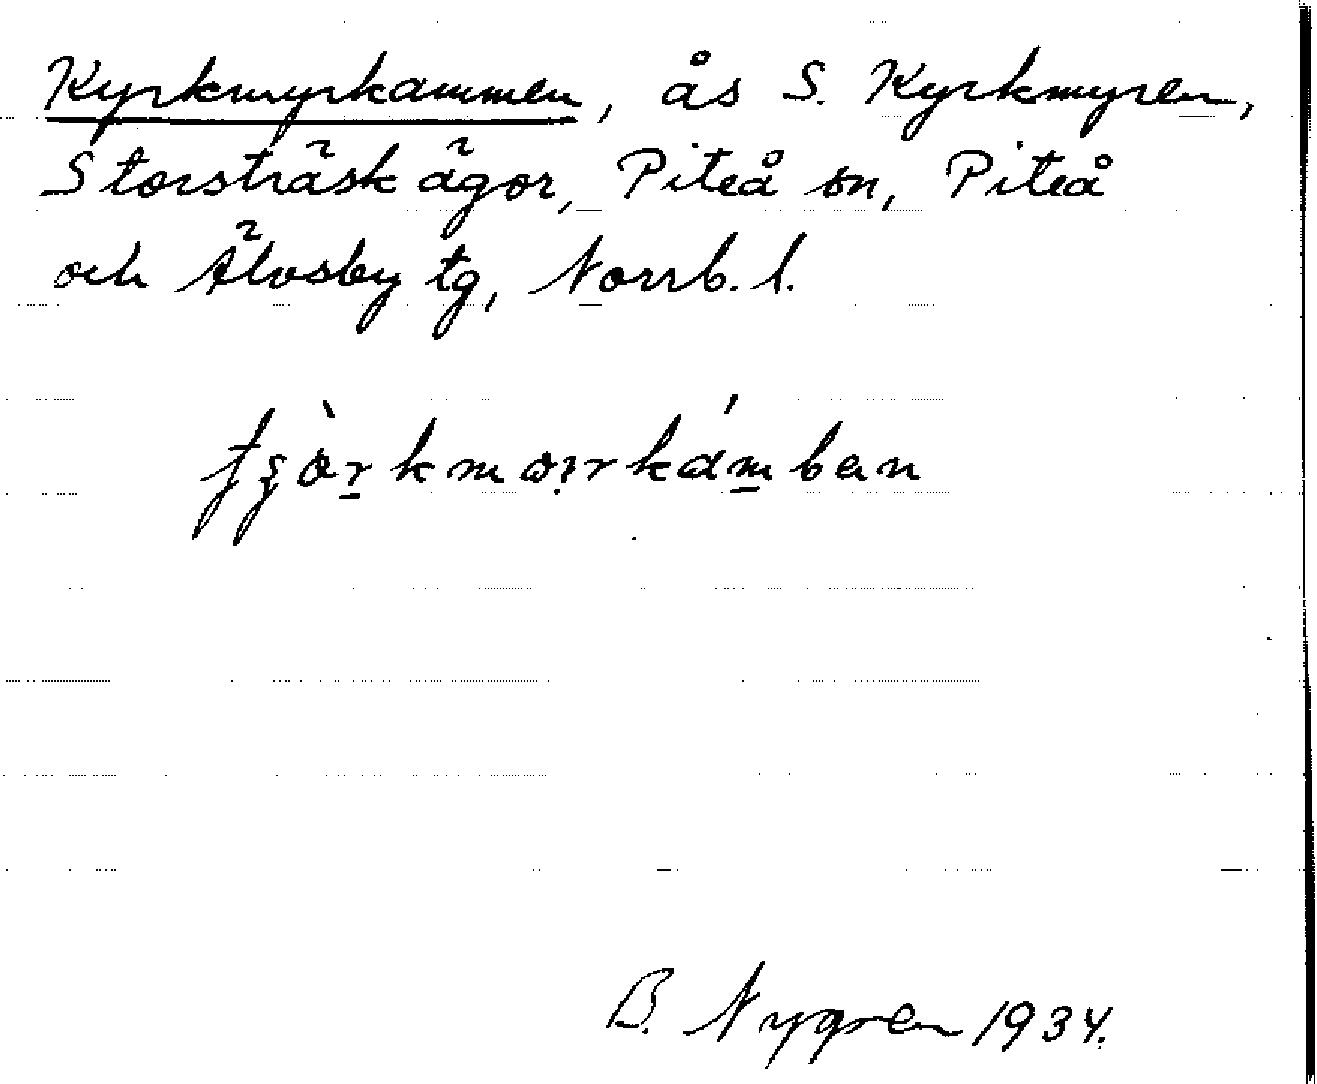 Kyrkmyrkammen, ås S. Kyrkmyren,
Storsträsk ägor, Piteå sn, Piteå
och Älvsby tg, Norrb. l.
B. Nygren 1934.